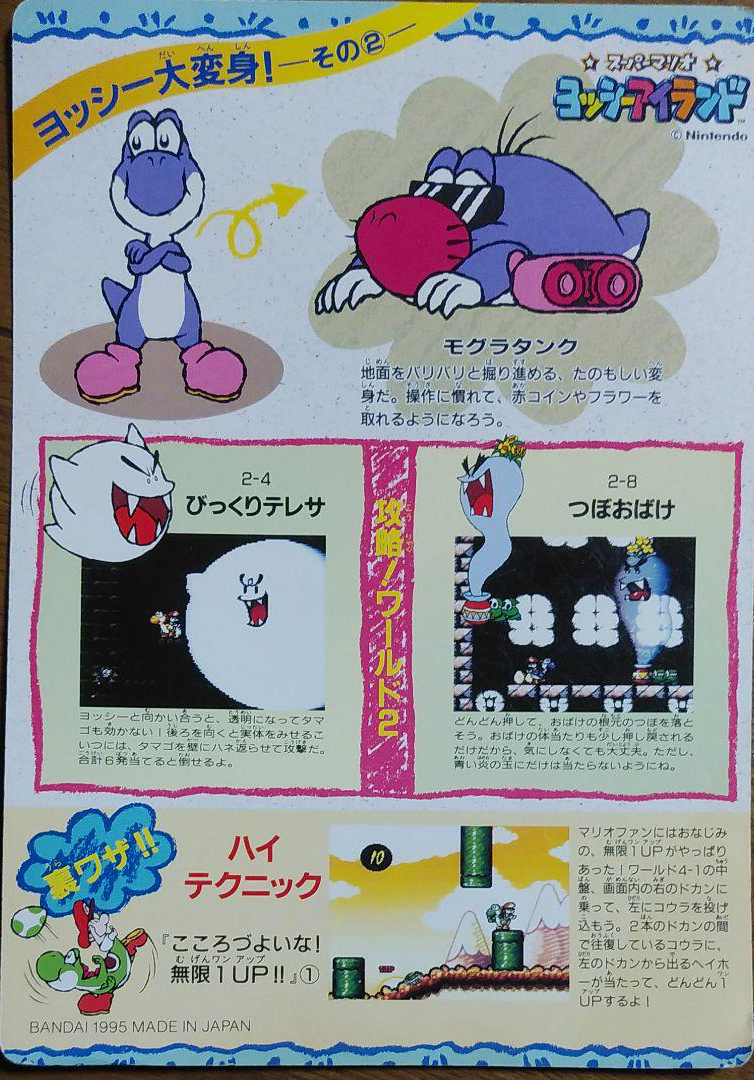 ヨッシー大変身!―その②―
スーパーマリオ
ヨッシーアイランド
© Nintendo
モグラタンク
地面をバリバリと掘り進める、たのもしい変
身だ。操作に慣れて、赤コインやフラワーを
取れるようになろう。
攻略!ワールド2
2-4
びっくりテレサ
ヨッシーと向かい合うと、透明になってタマ
ゴも効かない!後ろを向くと実体をみせるこ
いつには、タマゴを壁にハネ返らせて攻撃だ。
合計6発当てると倒せるよ。
2-8
つぼおばけ
どんどん押して、おばけの根元のつぼを落と
そう。おばけの体当たりも少し押し戻される
だけだから、気にしなくても大丈夫。ただし、
青い炎の玉にだけは当たらないようにね。
裏ワザ!!
ハイ
テクニック
『こころづよいな!
無限1UP!!』①
10
1UP
マリオファンにはおなじみ
の、無限1UPがやっぱり
あった!ワールド4-1の中
盤、画面内の右のドカンに
乗って、左にコウラを投げ
込もう。2本のドカンの間
で往復しているコウラに、
左のドカンから出るヘイホ
ーが当たって、どんどん1
UPするよ!
BANDAI 1995 MADE IN JAPAN